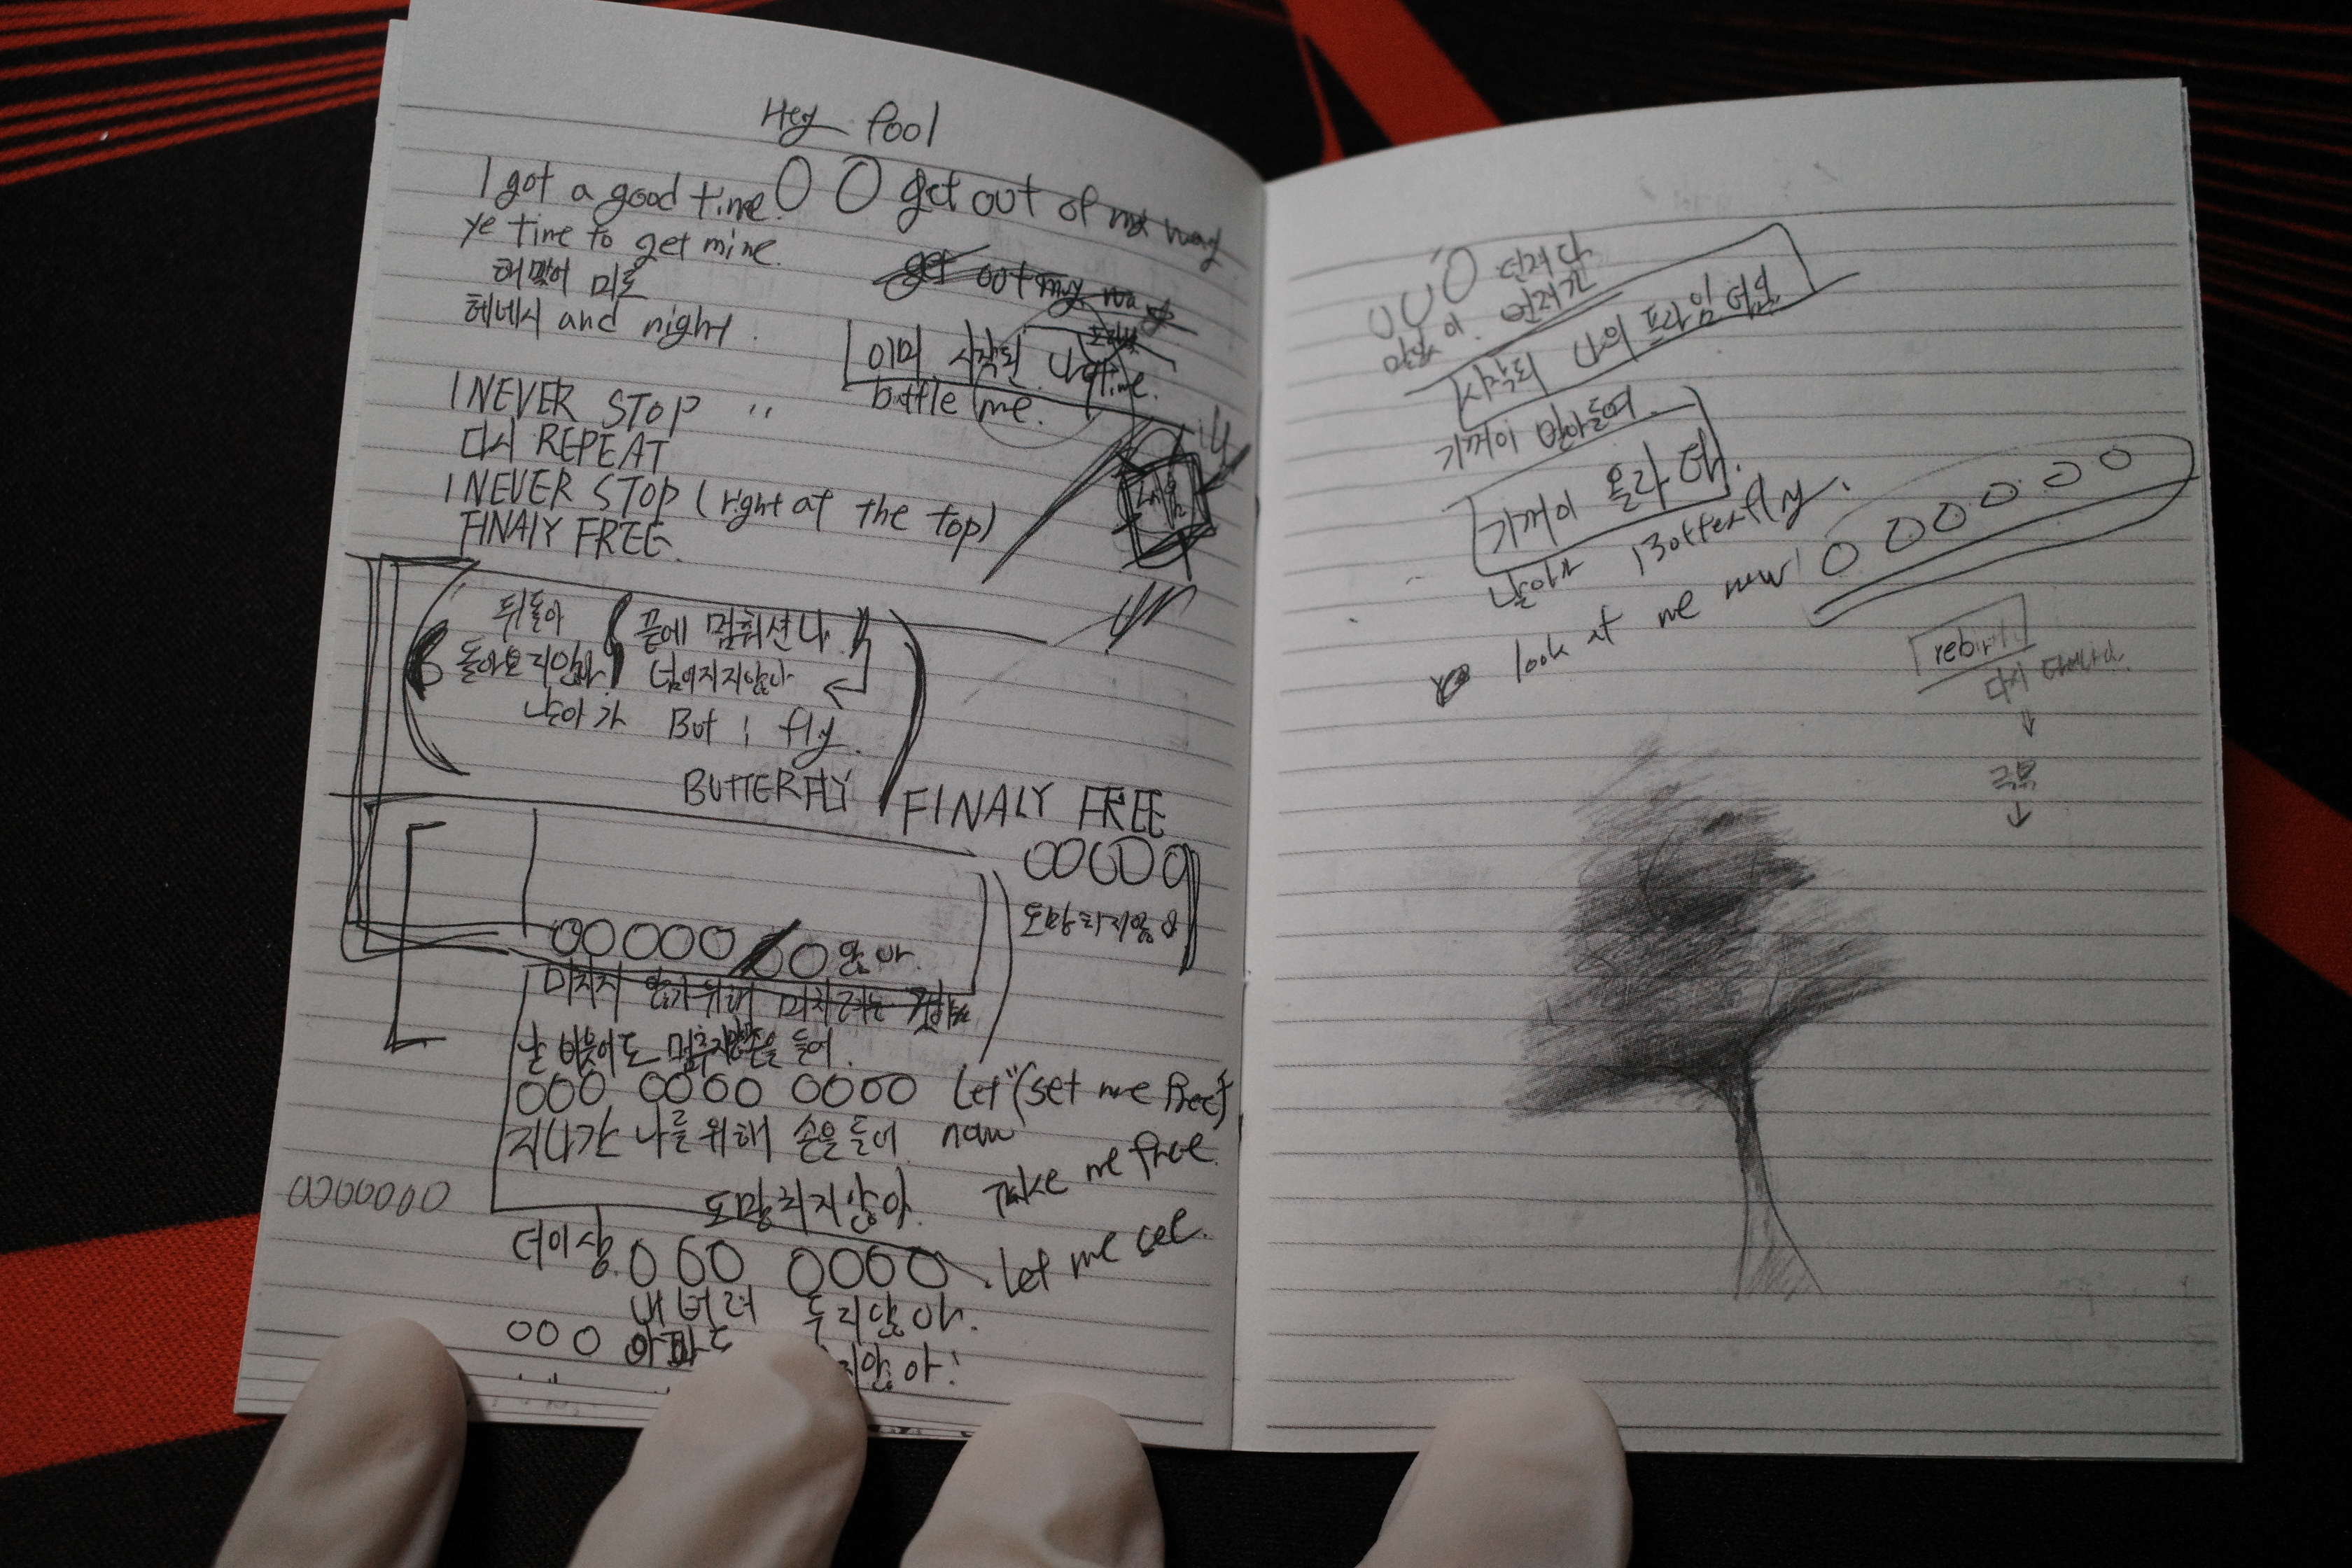 Hey Fool
I got a good time. O O get out of my way
ye time to get mine.
get out my way
미로
헤네시 and night.
이미 시작된 나 time.
battle me.
I NEVER STOP
다시 REPEAT
I NEVER STOP (right at the top)
FINALY FREE.
뒤돌아
돌아보지않아
날아가
끝에 멈춰선 나
넘어지지않아
But i fly.
BUTTERFLY
FINALY FREE
OOOOO
도망치지않아
OOOOO OO 않아.
미치지 않기위해 미치려는
날 비웃어도 손을 들어.
OOO OOOO OOOO Let "(set me free)
지나간 나를위해 손을들어 now
Take me free.
OOOOOOO
도망치지않아.
더이상 O OO OOOO
Let me see.
내버려 두지않아.
OOO 아파도
지않아!
OOO 던져다
먼저간
시작된 나의 프라임 타임
기꺼이 받아들여.
기꺼이 올라타.
날아가 Botterfly.
look at me now! O O O O O O
rebirth
다시 태어나다.
↓
극복
↓